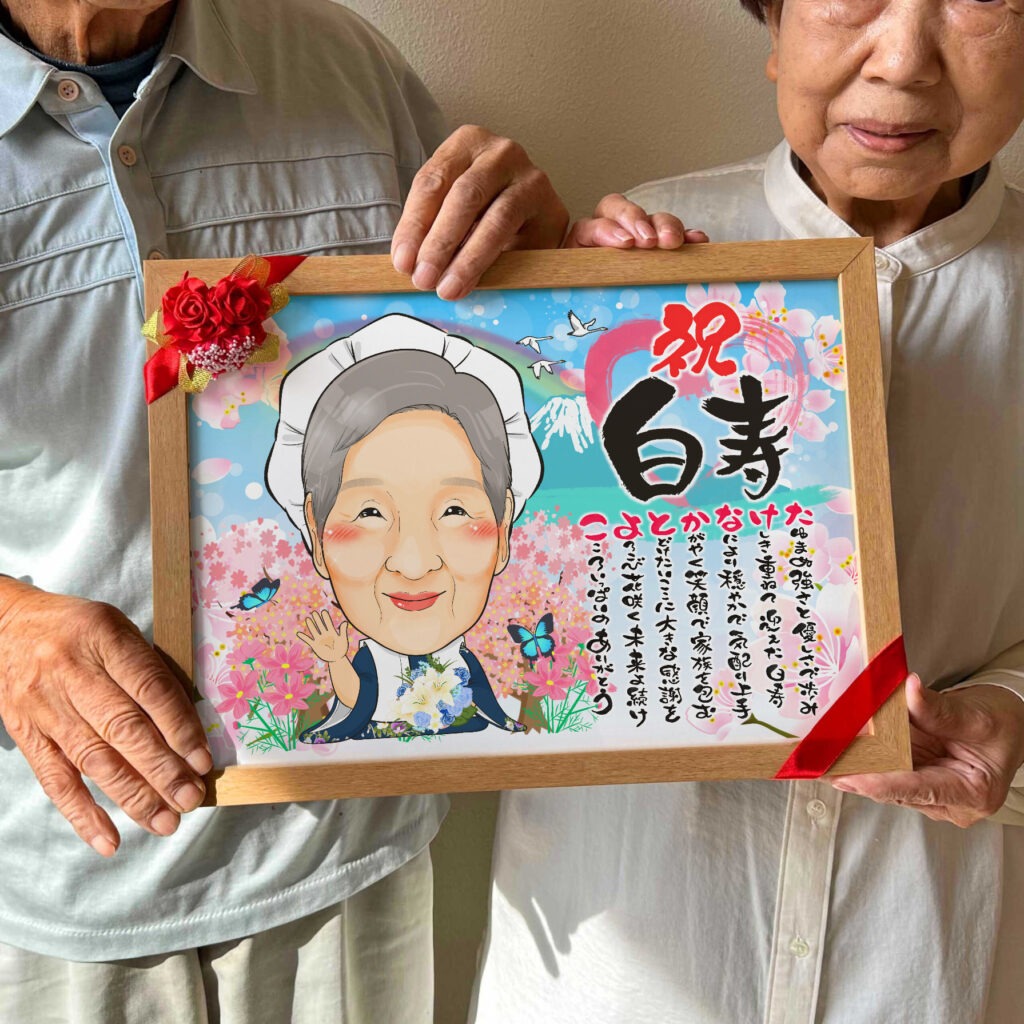 祝
白寿
たゆまぬ強さと優しさで歩み
けしき重ねて 迎えた 白寿
なにより穏やかで 気配り上手
かがやく笑顔で 家族を包む
とどけたいここに 大きな感謝を
よろこび花咲く 未来よ続け
こころいっぱいの ありがとう